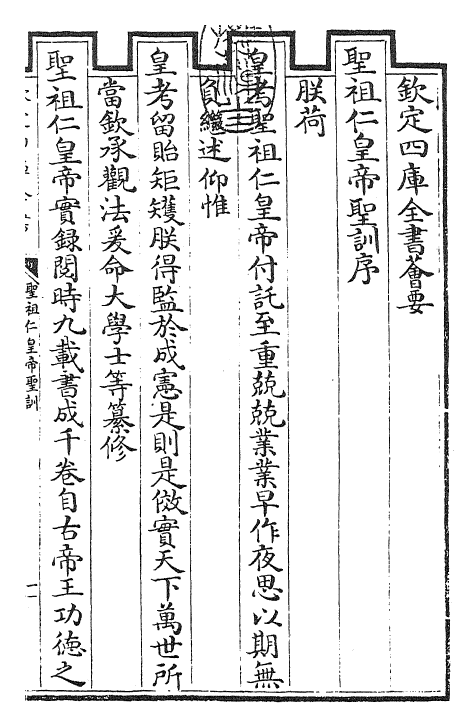 欽定四庫全書薈要
聖祖仁皇帝聖訓序
朕荷
皇考聖祖仁皇帝付託至重兢兢業業早作夜思以期無
負繼述仰惟
皇考留貽矩矱朕得監於成憲是則是傚實天下萬世所
當欽承觀法爰命大學士等纂修
聖祖仁皇帝實錄閱時九載書成千卷自古帝王功德之
聖祖仁皇帝聖訓
一